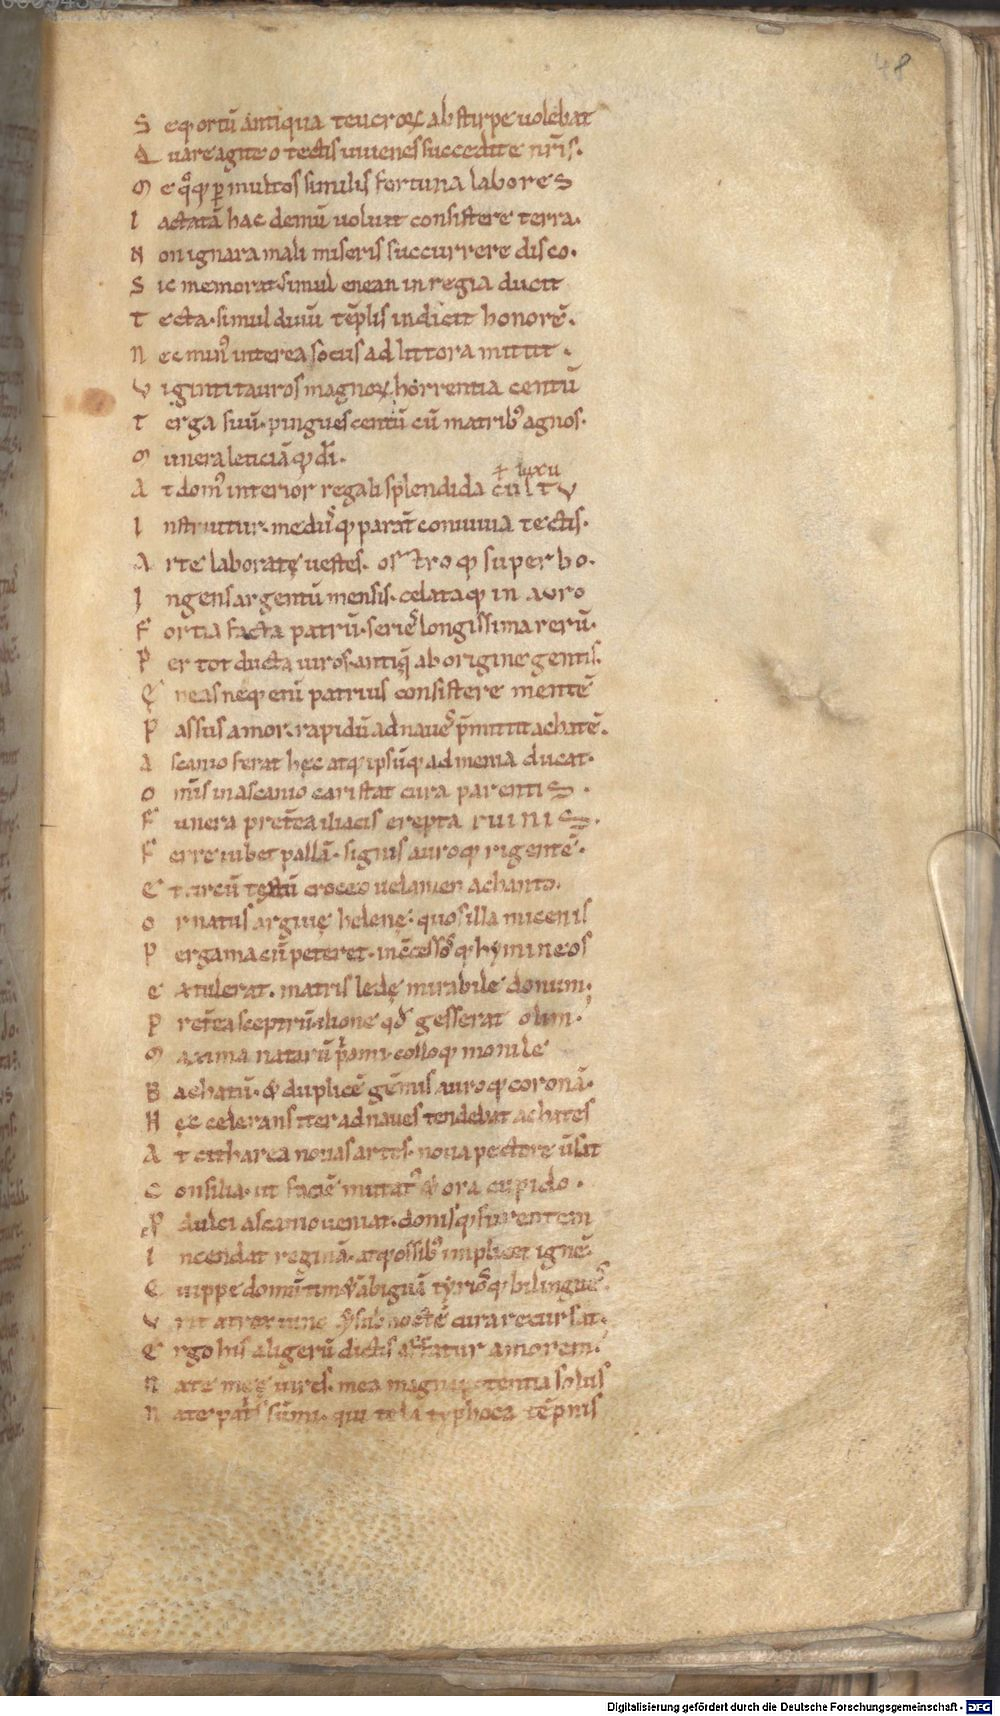 48
S eq; ortū antiqua teucroꝝ ab stirpe uolebat
Q uare agite o tectis iuuenes succedite nr̄is.
M e qͦq; ꝑ multos similis fortuna labores
I actatā hac demū uoluit consistere terra.
N on ignara mali miseris succurrere disco.
S ic memorat. simul enean in regia ducit
T ecta. simul diuū tēplis indicit honorē.
N ec minꝰ interea sociis ad littora mittit.
V iginti tauros magnoꝝ horrentia centū
T erga suū. pingues centū cū matribꝰ agnos.
M unera leticiāq; di.
ł luxu
A t domꝰ interior regali splendida cultu
I nstruitur. mediisq; parāt conuiuia tectis.
A rte laboratę uestes. ostroq; superbo.
I ngens argentū mensis. celataq; in auro
F ortia facta patrū. seriēs longissima rerū.
P er tot ducta uiros. antiq̄ ab origine gentis.
Ę neas neq; enī patrius consistere mentē
P assus amor. rapidū ad naues p̄mittit achatē.
A scanio ferat hęc atq; ipsūq; ad menia ducat.
O m̄is in ascanio cari stat cura parentis.
F unera pret̄ea iliacis erepta ruinis.
F erre iubet pallā. signis auroq; rigentē.
E t circū textū croceo uelamen achanto.
O rnatus arguię helenę. quos illa micenis
P ergama cū peteret. incēssosq; hymineos
E xtulerat. matris ledę mirabile donum.
P ret̄ea sceptrū. ilione qđ gesserat olim.
M axima natarū p̄ami. colloq; monile
B achatū. & duplicē gēmis auroq; coronā.
H ęc celerans iter ad naues tendebat achates
A t citharea nouas artes. noua pectore ūsat
C onsilia. ut faciē mutatꝰ & ora cupido.
P dulci ascanio ueniat. donisq; furentem
I ncendat reginā. atq; ossibꝰ implicet ignē.
Q uippe domū timet ābiguā tyriosq; bilingues.
V rit atrox iuno & sub noctē cura recursat.
E rgo his aligerū dictis affatur amorem.
N ate meę uires. mea magna potentia solus
N ate pat̄s sūmi. qui tela typhoea tēpnis
Digitalisierung gefördert durch die Deutsche Forschungsgemeinschaft - DFG